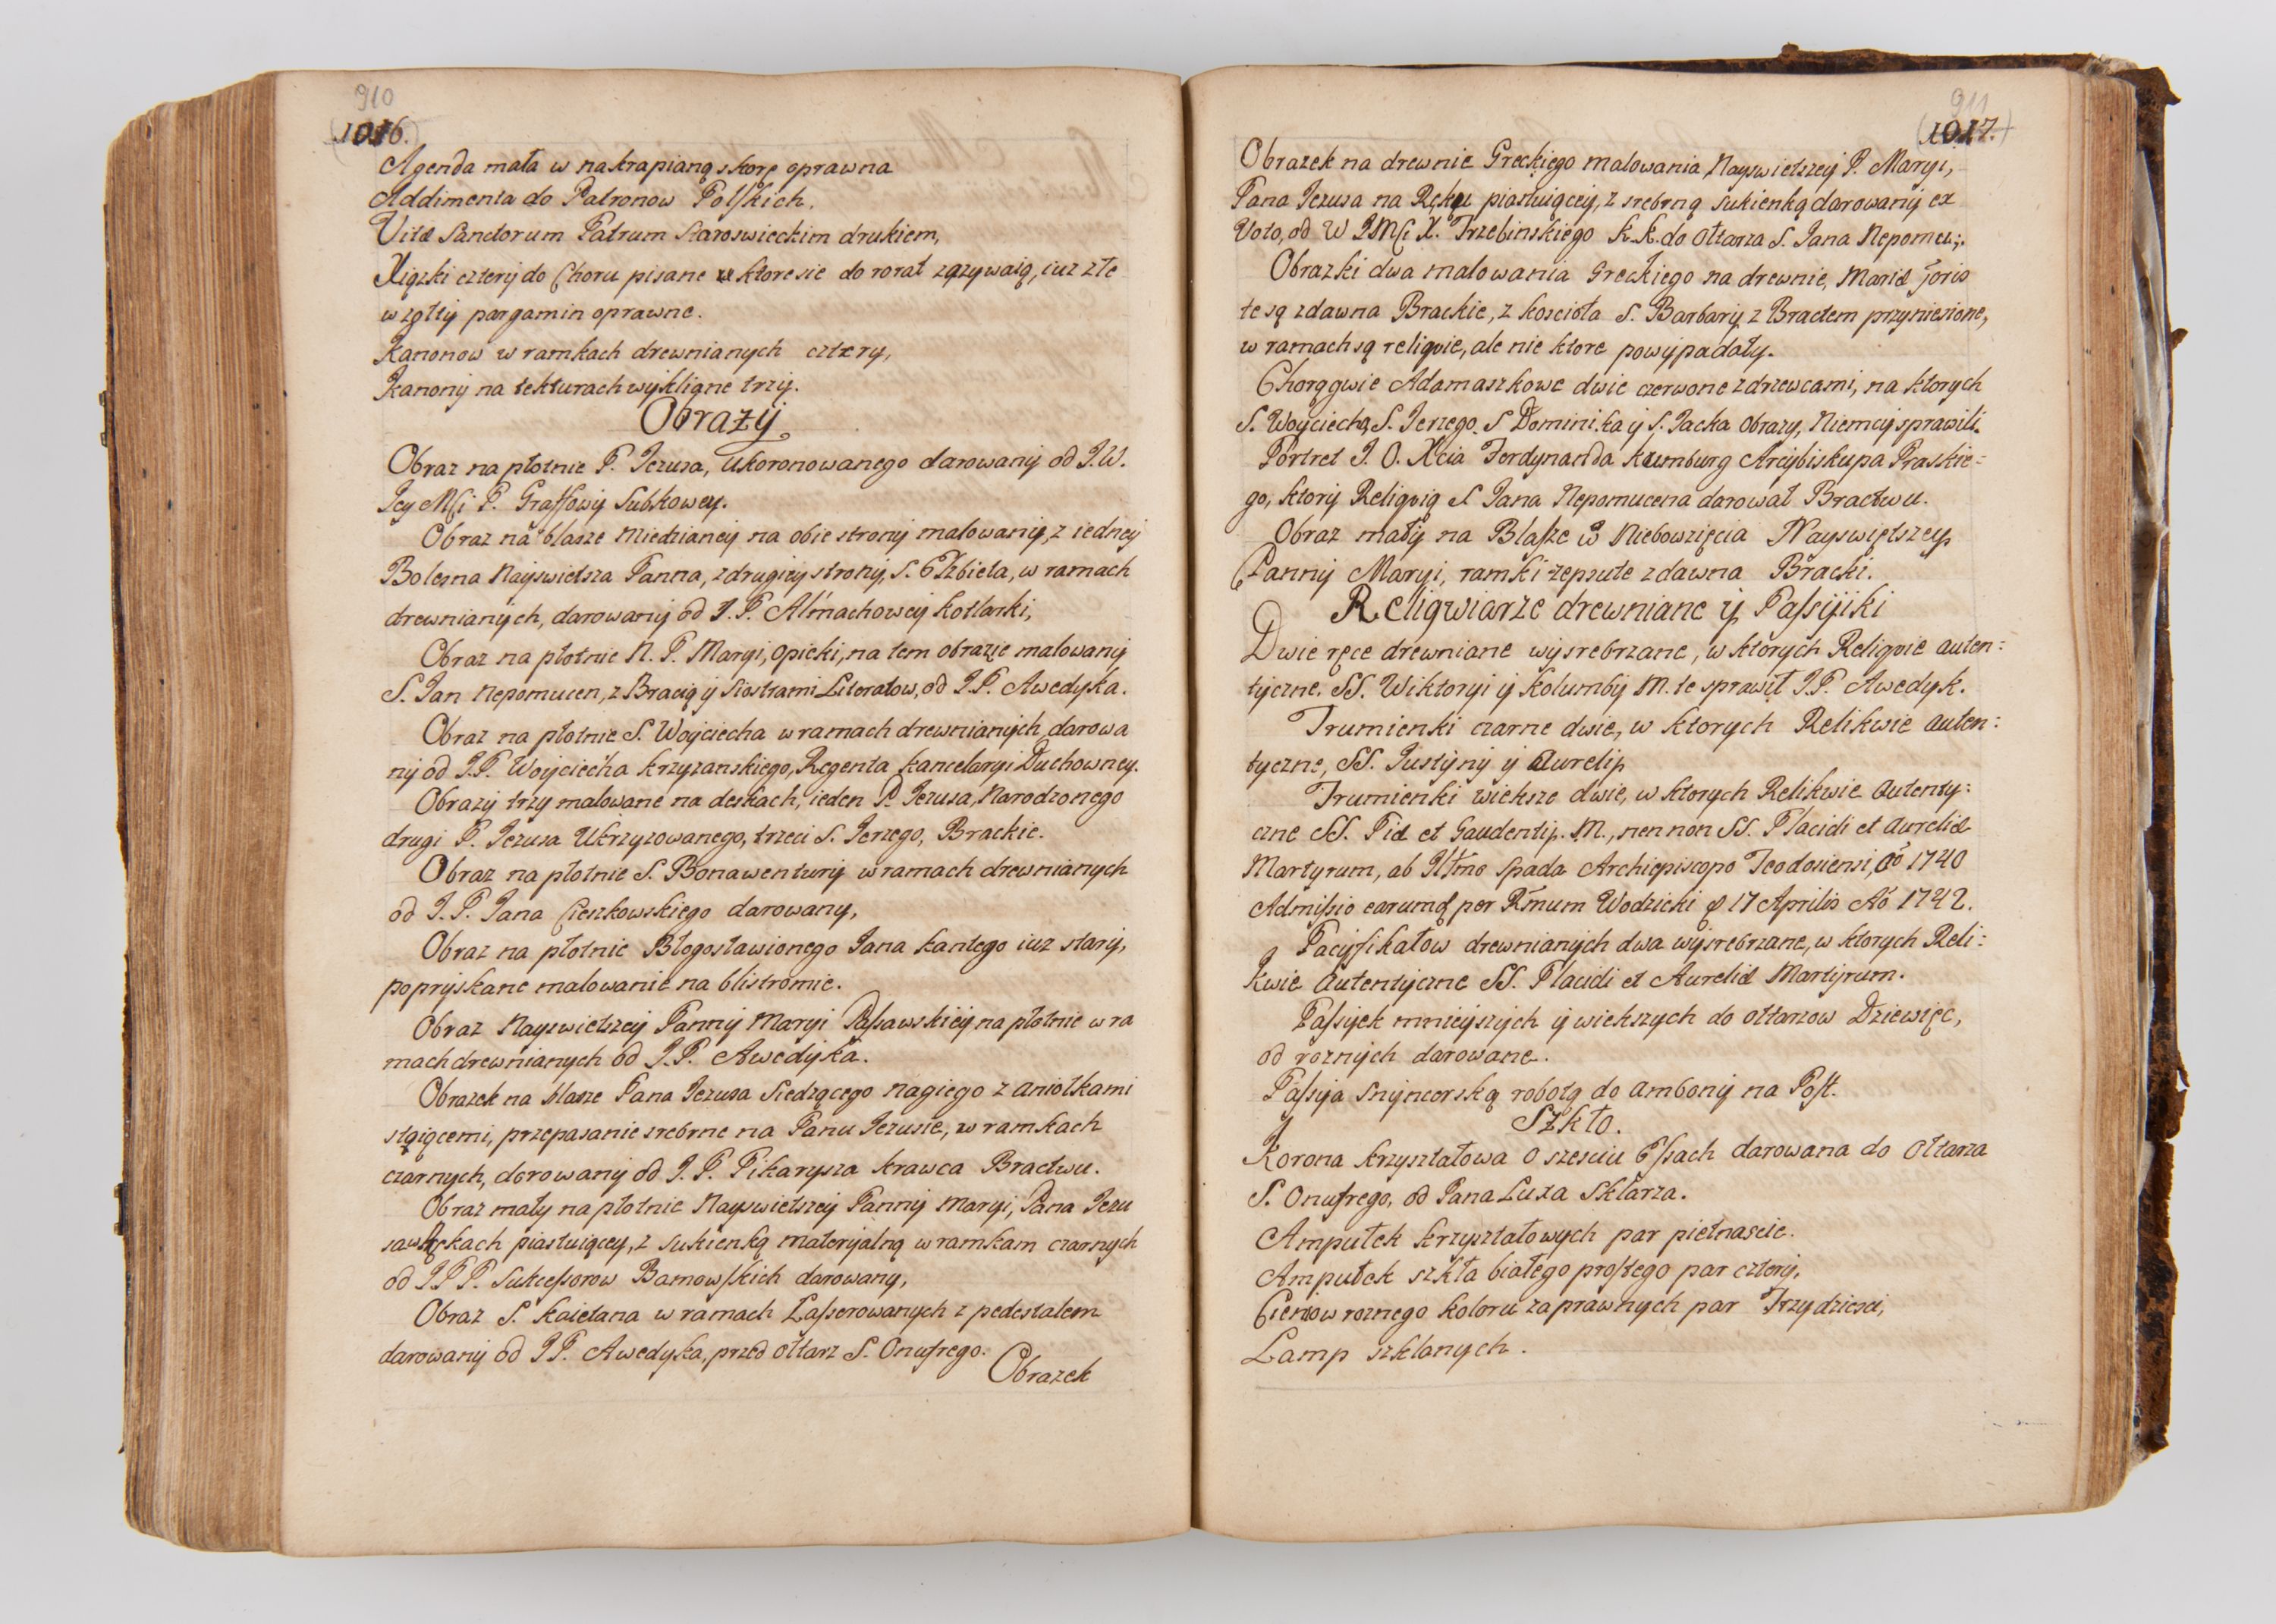 910
1016.
Agenda mała w nakrapianą skorę oprawna
Addimenta do Patronow Polskich.
Vitæ Sanctorum Patrum Staroswieckim drukiem,
Xiąszki cztery do Choru pisane w ktore sie do rorat zązywaią, iuz złe
w zołty pargamin oprawne.
Kanonow w ramkach drewnianych cztery,
Kanony na tekturach wyklięne trzy.
Obrazy
Obraz na płotnie P. Jezusa, Ukoronowanego darowany od J.W.
Jey Mći P. Graffowy Subkowey.
Obraz na blasze Miedzianey na obie strony malowany, z iedney
Bolesna Nayswietsza Panna, z drugiey strony, S. Elzbieta, w ramach
drewnianych, darowany od J.P. Almachowey Kotlarki,
Obraz na płotnie N. P. Maryi, Opieki, na tem obrazie malowany
S. Jan Nepomucen, z Bracią y Siostrami Literatow, od J.P. Awedyka.
Obraz na płotnie S. Woyciecha w ramach drewnianych darowa
ny od J.P. Woyciecha Krzyzanskiego, Regenta Kancelaryi Duchowney.
Obrazy trzy malowane na deskach, ieden P. Jezusa, Narodzonego
drugi P. Jezusa Ukrzyzowanego, trzeci S. Jerzego, Brackie.
Obraz na płotnie S. Bonawentury w ramach drewnianych
od J.P. Jana Cieszkowskiego darowany,
Obraz na płotnie Błogosławionego Jana Kantego iuz stary,
popryskane malowanie na blistromie.
Obraz Nayswietszey Panny Maryi Passawskiey na płotnie w ra
mach drewnianych od J.P. Awedyka.
Obrazek na blasze Pana Jezusa Siedzącego nagiego z aniołkami
stąiącemi, przepasanie srebrne na Panu Jezusie, w ramkach
czarnych, darowany od J.P. Pikarysza krawca Bractwu.
Obraz mały na płotnie Nayswietszey Panny Maryi, Pana Jezu
sa w Rękach piastuiącey, z Sukienką materyalną w ramkam czarnych
od J P P. Sukcessorow Bamowskich darowany,
Obraz S. Kaietana w ramach Lasserowanych z pedestałem
darowany od J P. Awedyka, przed ołtarz S. Onufrego.
Obrazek
911
1017.
Obrazek na drewnie Greckiego malowania Nayswietszey P. Maryi,
Pana Jezusa na Ręku piastuiącey, z srebrną sukienką darowany ex
Voto, od W JMći X. Trzebinskiego K.K. do Ołtarza S. Jana Nepomu:
Obrazki dwa malowania Greckiego na drewnie, Mariæ
te są zdawna Brackie, z kosciola S. Barbary z Bractem przyniesione,
w ramach są reliqvie, ale nie ktore powypadały.
Chorągwie Adamaszkowe dwie czerwone z drzewcami, na ktorych
S. Woyciecha, S. Jerzego, S Dominika y S. Jacka Obrazy, Niemcy sprawili.
Portret J. O. Xcia Ferdynanda Kumburg Arcybiskupa Praskie:
go, ktory Reliqvią S Jana Nepomucena darował Bractwu.
Obraz mały na Blasze W Niebowzięcia Nayswiętszey
Panny Maryi, ramki zepsute zdawna Bracki.
Religwiarze drewniane y Passyiki
Dwie ręce drewniane wysrebrzane, w ktorych Reliqvie auten:
tyczne, SS. Wiktoryi y Kolumby M. te sprawił J.P. Awedyk.
Trumienki czarne dwie, w ktorych Relikwie auten:
tyczne, SS. Justyny y Aurelij
Trumienki wieksze dwie, w ktorych Relikwie Autenty:
czne SS. Piæ et Gaudentij. M., nen non SS. Placidi et Aureliæ
Martyrum, ab Illmo Spada Archiepiscopo Teodosiensi, Aõ 1740
Admissio earumq per Rmum Wodzicki 17 Aprilis Aõ 1742.
Pacyfikałow drewnianych dwa wysrebrzane, w ktorych Reli:
kwie Autentyczne SS. Placidi et Aureliæ Martyrum.
Passyek mnieyszych y wiekszych do ołtarzow Dziewięc,
od roznych darowane.
Passya Snyncerską robotą do ambony na Post.
Szkło.
Korona Krzyształowa o szesciu Essach darowana do Ołtarza
S. Onufrego, od Pana Luxa Sklarza.
Ampułek krzyształowych par pietnascie.
Ampułek szkła białego prostego par cztery,
Cieniow roznego koloru zaprawnych par Trzydziesci,
Lamp szklanych.